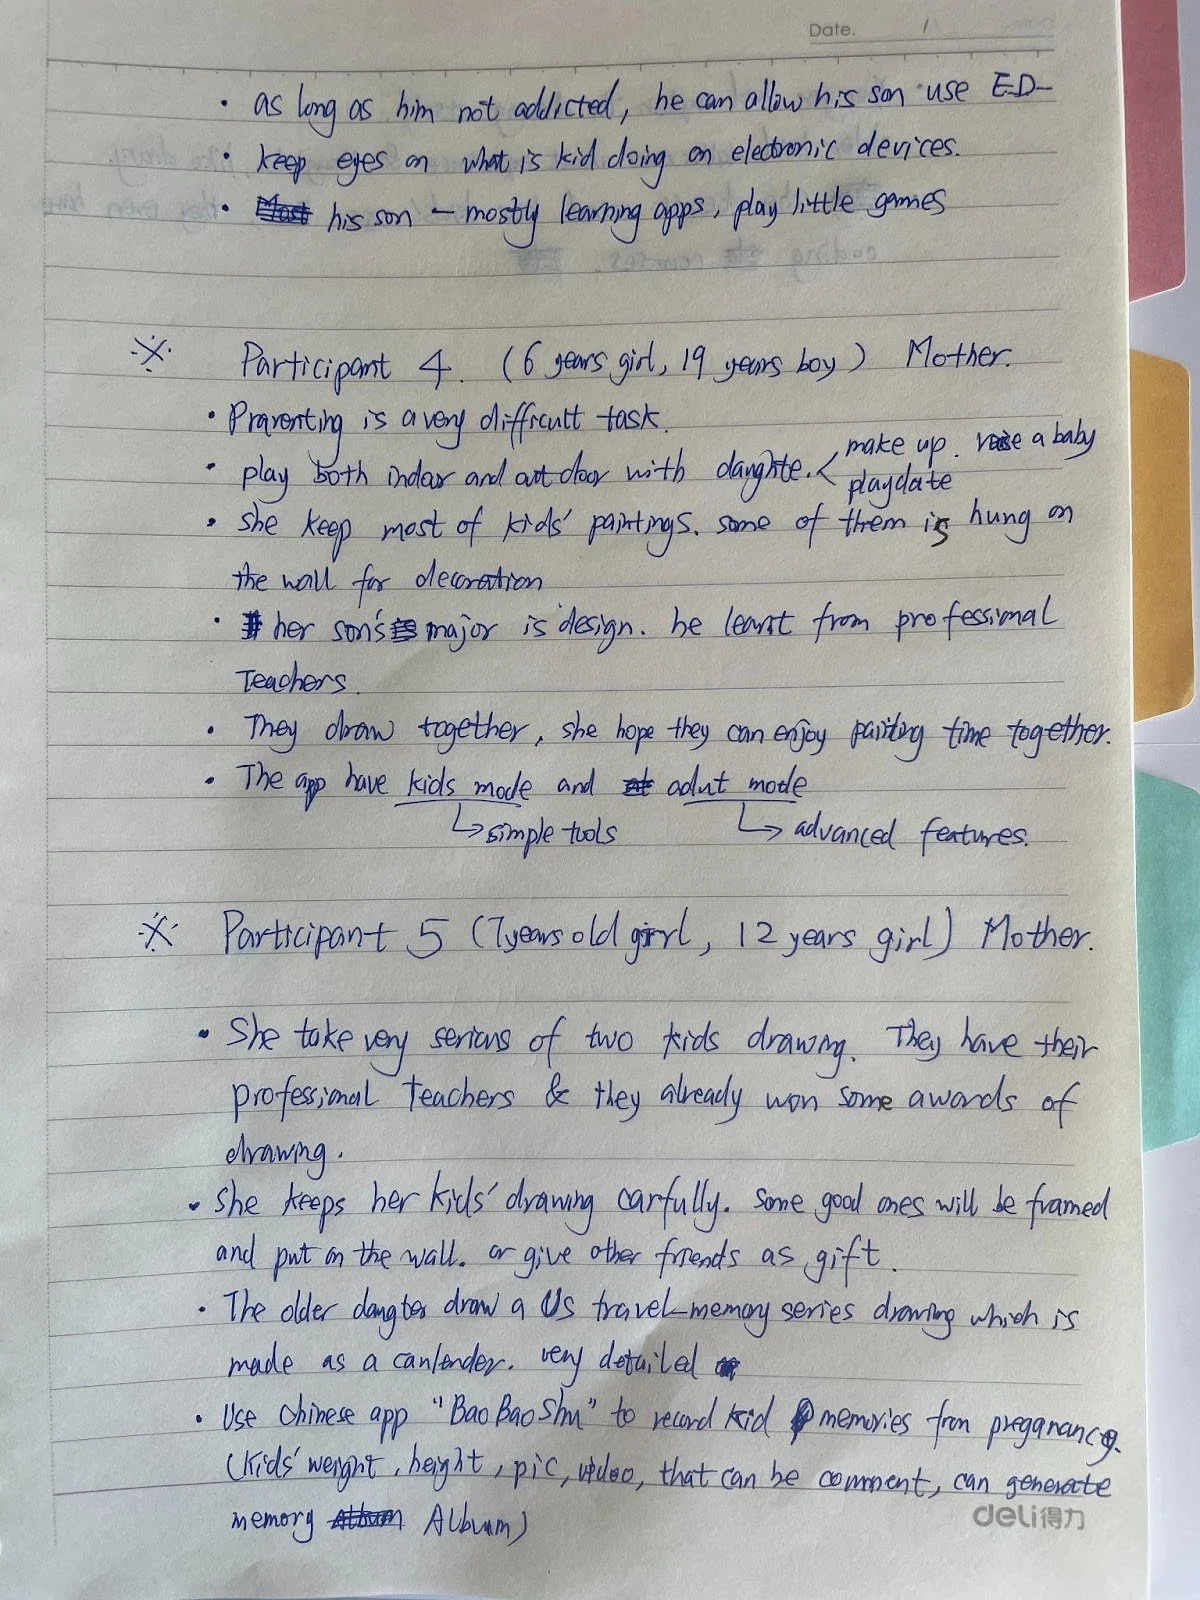 Date. /
• as long as him not addicted, he can allow his son use ED
• keep eyes on what is kid doing on electronic devices.
• his son – mostly learning apps, play little games
※ Participant 4. (6 years girl, 19 years boy) Mother.
• Praventing is a very difficult task.
• play both indoor and outdoor with daughte. < make up. raise a baby
playdate
• she keep most of kids' paintings. some of them is hung on
the wall for decoration
• her son's major is design. he learnt from professional
Teachers.
• They draw together, she hope they can enjoy painting time together.
• The app have kids mode and adut mode
↳ simple tools ↳ advanced features.
※ Participant 5 (7 years old girl, 12 years girl) Mother.
• She take very serious of two kids drawing. They have their
professional Teachers & they already won some awards of
drawing.
• She keeps her kids' drawing carfully. Some good ones will be framed
and put on the wall. or give other friends as gift.
• The older daugter draw a US travel-memory series drawing which is
made as a canlender. very detailed
• Use Chinese app "BaoBaoShu" to record kid memories from pregranancy.
(Kids' weight, height, pic, video, that can be comment, can generate
memory Album)
deli得力